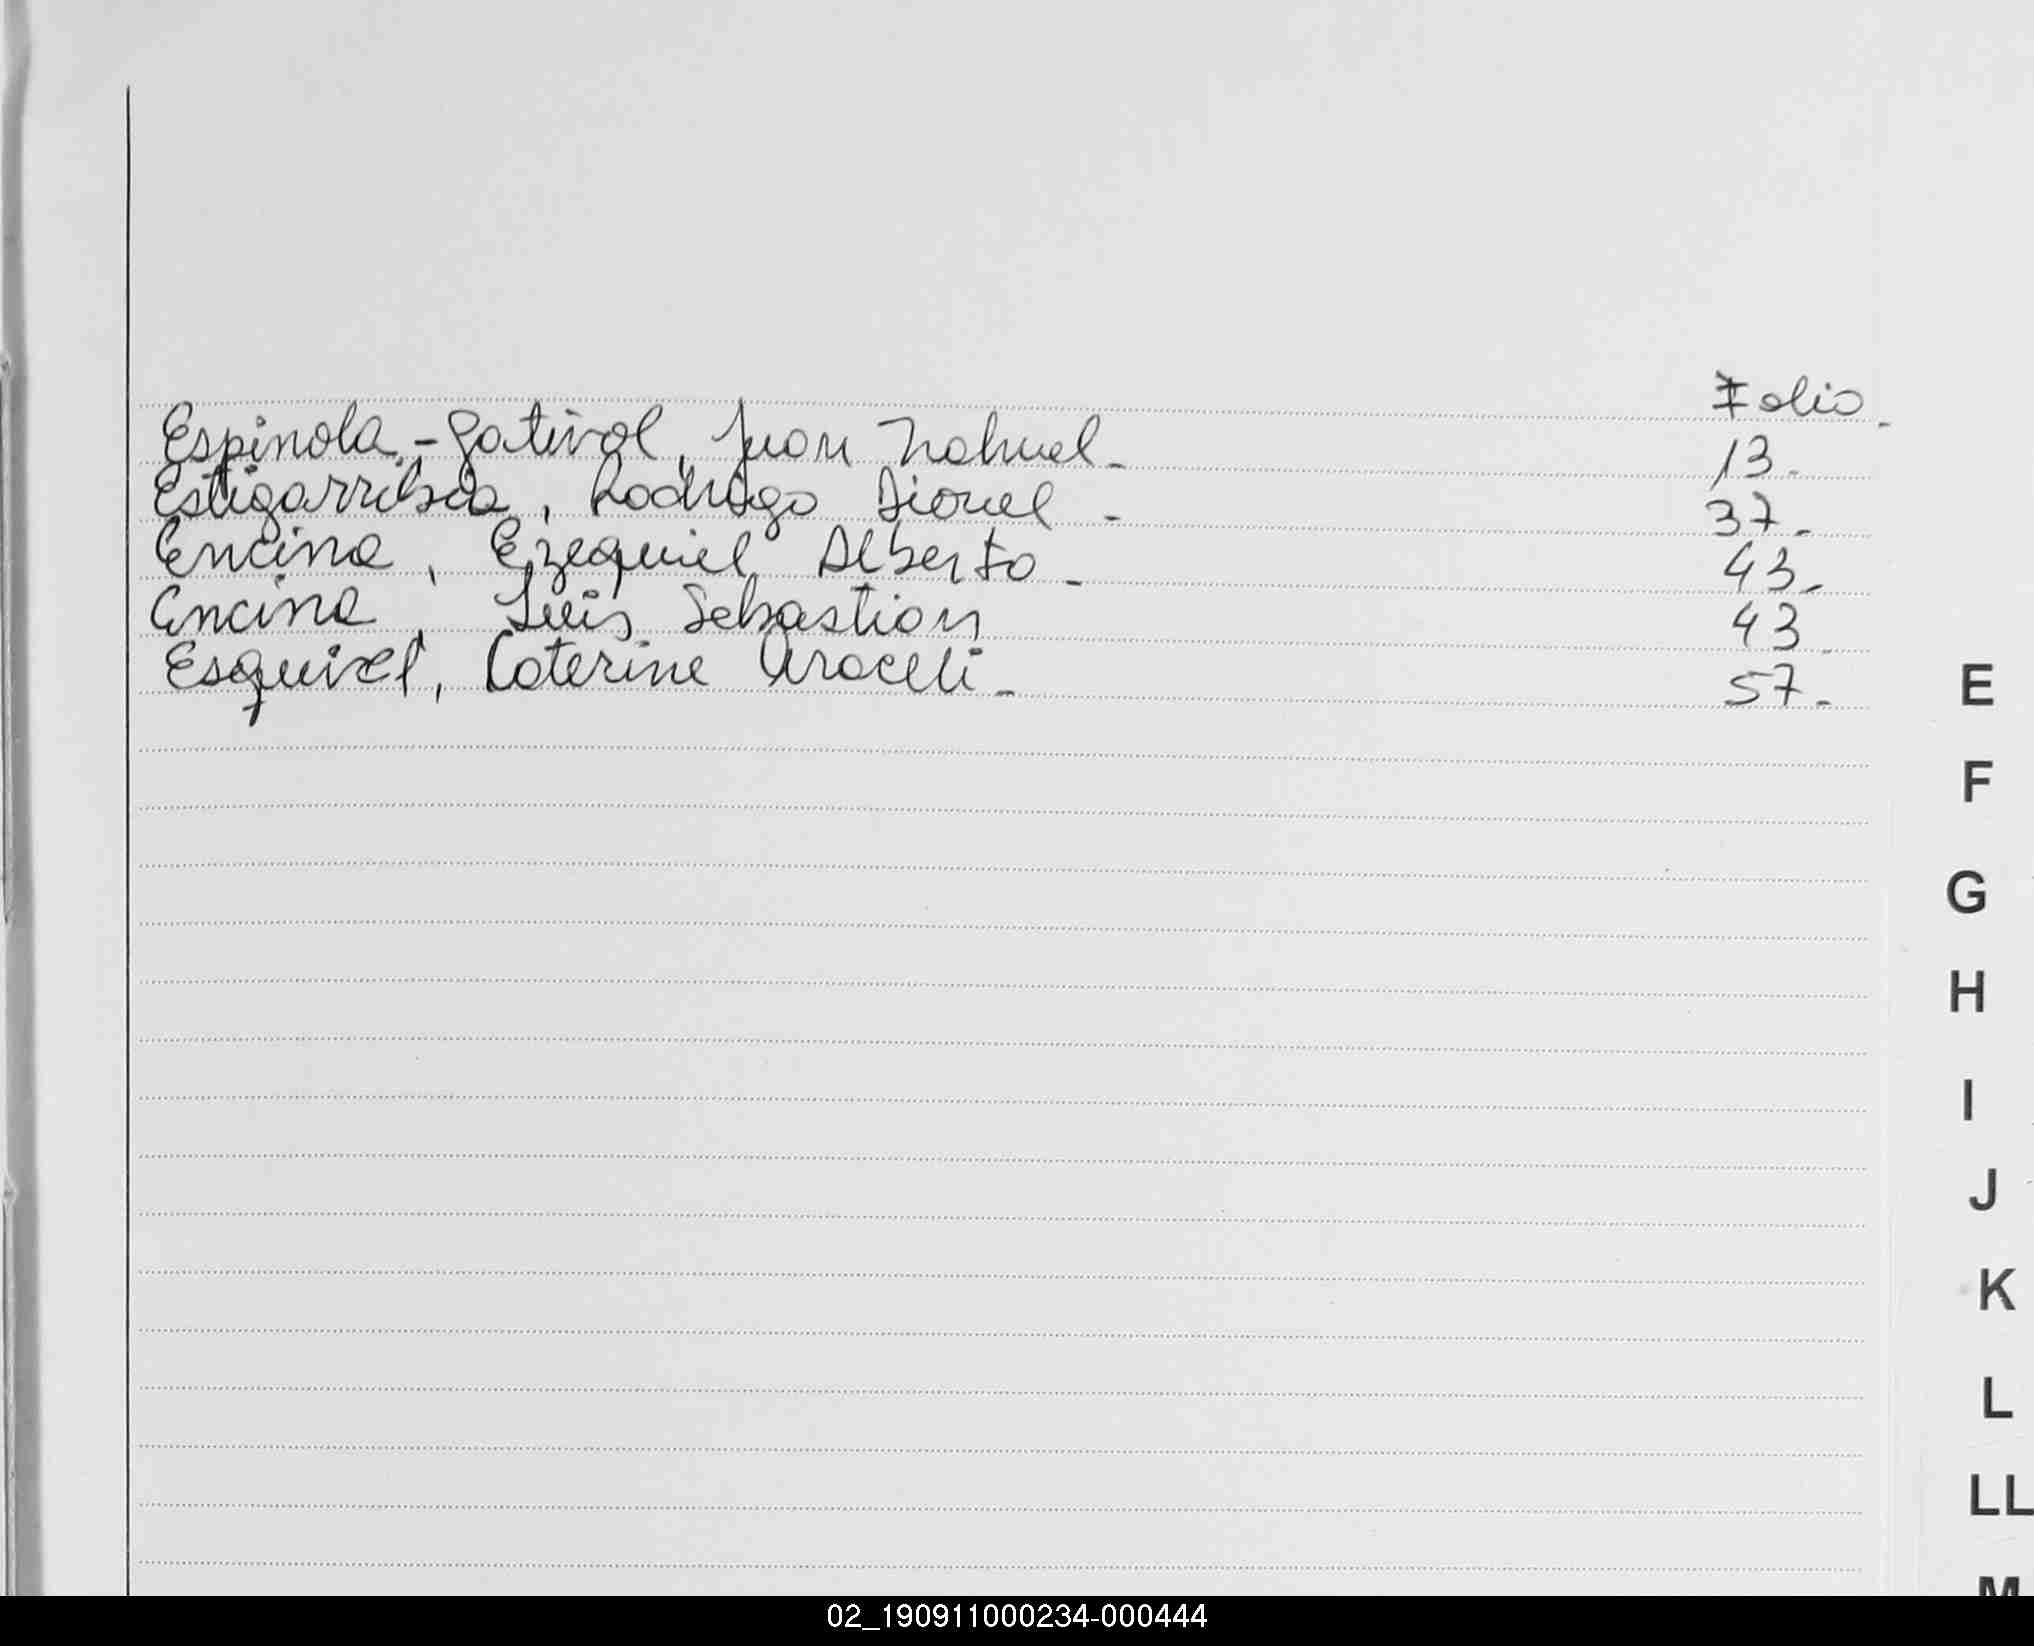 Folio.
Espinola - Gatival, Juan Nahuel - 13.
Estigarribia, Rodrigo Dionel - 37.
Encina, Ezequiel Alberto - 43.
Encina, Luis Sebastian 43
Esquivel, Caterine Araceli - 57.
E
F
G
H
I
J
K
L
LL
M
02_190911000234-000444